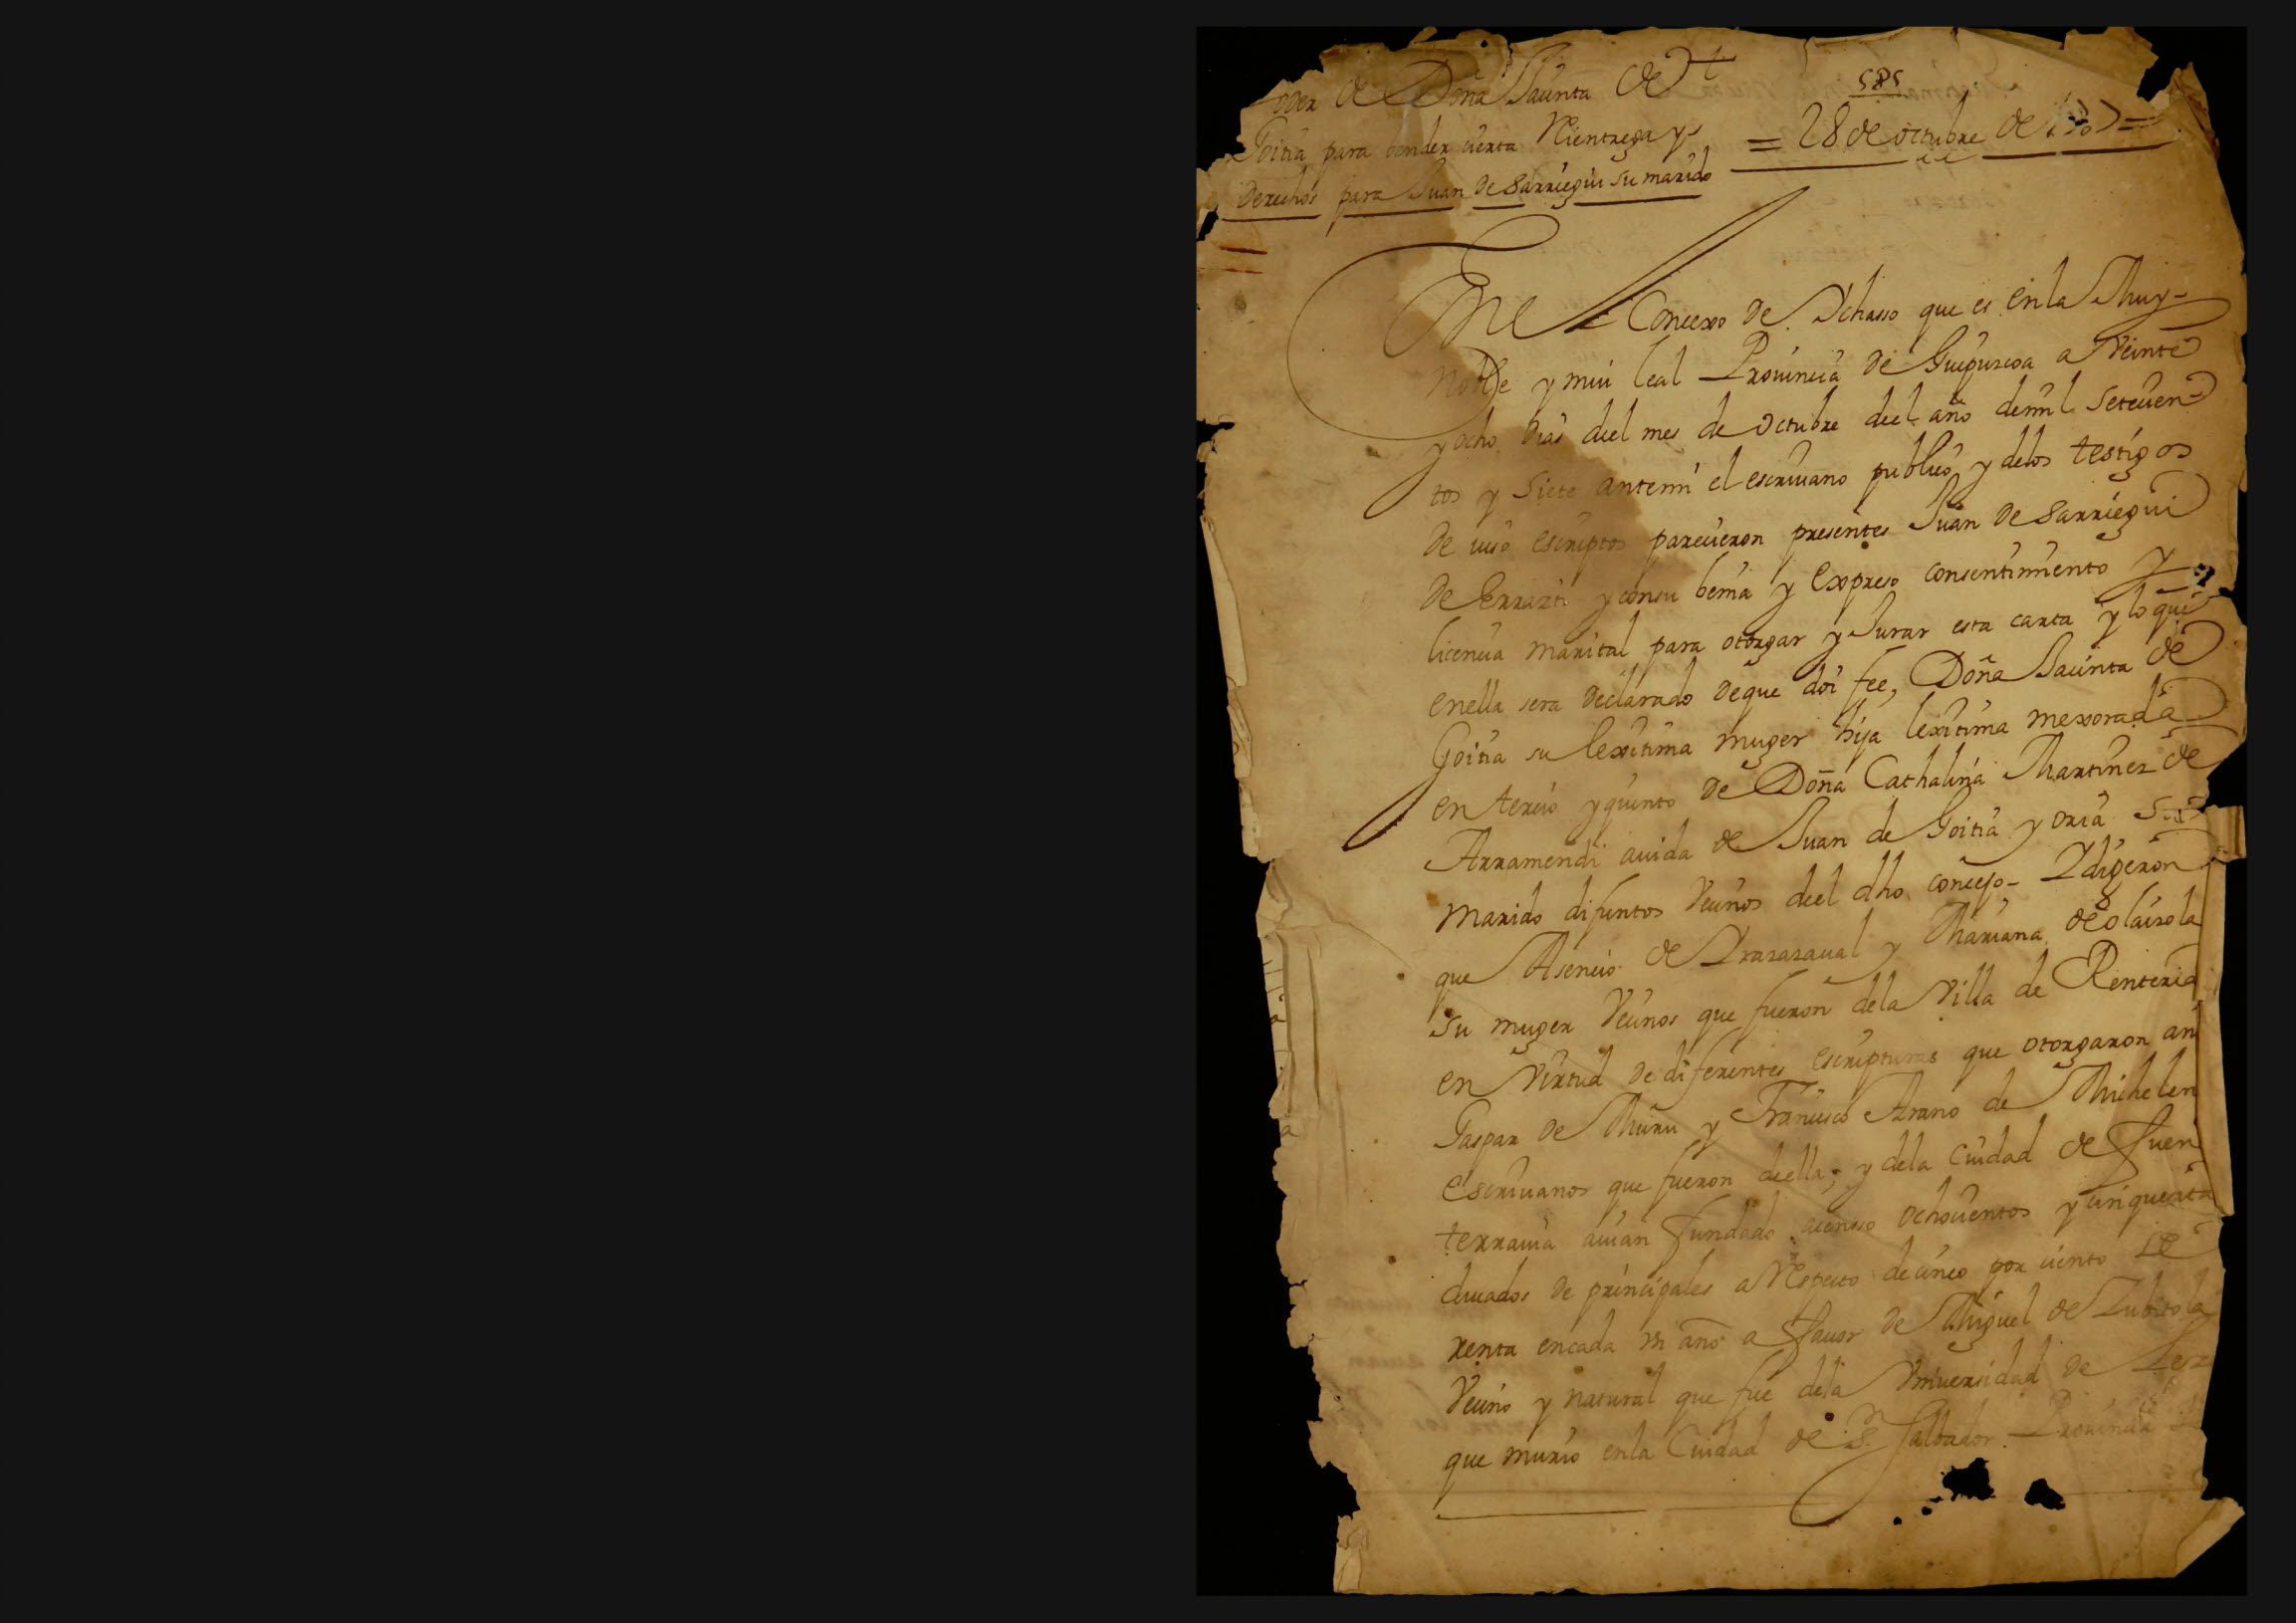 oder de Doña Jacinta de
Goitia para vender cierta Reentrega y
derechos para Juan de Sarriegui su marido
= 28 de octubre de 1707 =
En el Concexo de Ychasso que es en la Muy
Noble y mui leal Prouincia de Guipuzcoa a Veinte
y ocho dias del mes de Octubre del año de mil setecien-
tos y siete ante mi el escriuano publico y de los testigos
de iuso escriptos parecieron presentes Juan de Sarriegui
de Errazti y con su benia y Expreso consentimiento y
licencia marital para otorgar y Jurar esta carta y lo que
en ella sera declarado de que doi fee, Doña Jacinta de
Goitia su lexitima muger hija lexitima mexorada
en tercio y quinto de Doña Cathalina Martinez de
Arramendi auida de Juan de Goitia y oria su
marido difuntos Vecinos del dho concejo- Y digeron
que Asencio de Yrazazaual y Mariana de Olaizola
su muger Vecinos que fueron de la Villa de Renteria
en Virtud de diferentes escripturas que otorgaron an
Gaspar de Muru y Francisco Arano de Michelen
Escriuanos que fueron de ella; y de la Ciudad de Fuen
terrauia auian fundado acenso ochocientos y cinquenta
ducados de principales a Respecto de cinco por ciento de
renta en cada un año a fauor de Miguel de Zubitola
Vecino y natural que fue de la Vniuersidad de Lez
que murio en la Ciudad de Sn Salbador Prouincia